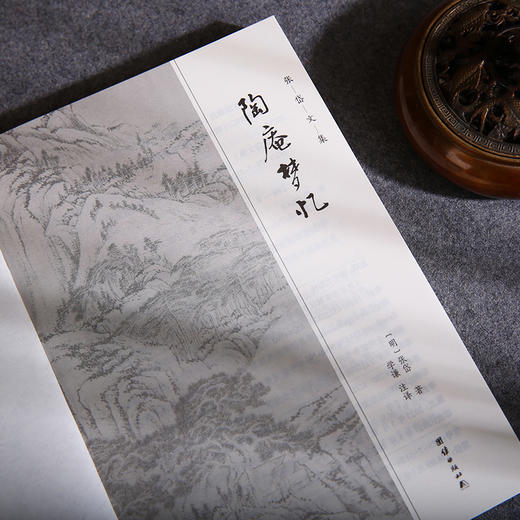 张岱文集
陶庵梦忆
[明]张岱 著
学谦 注译
团结出版社